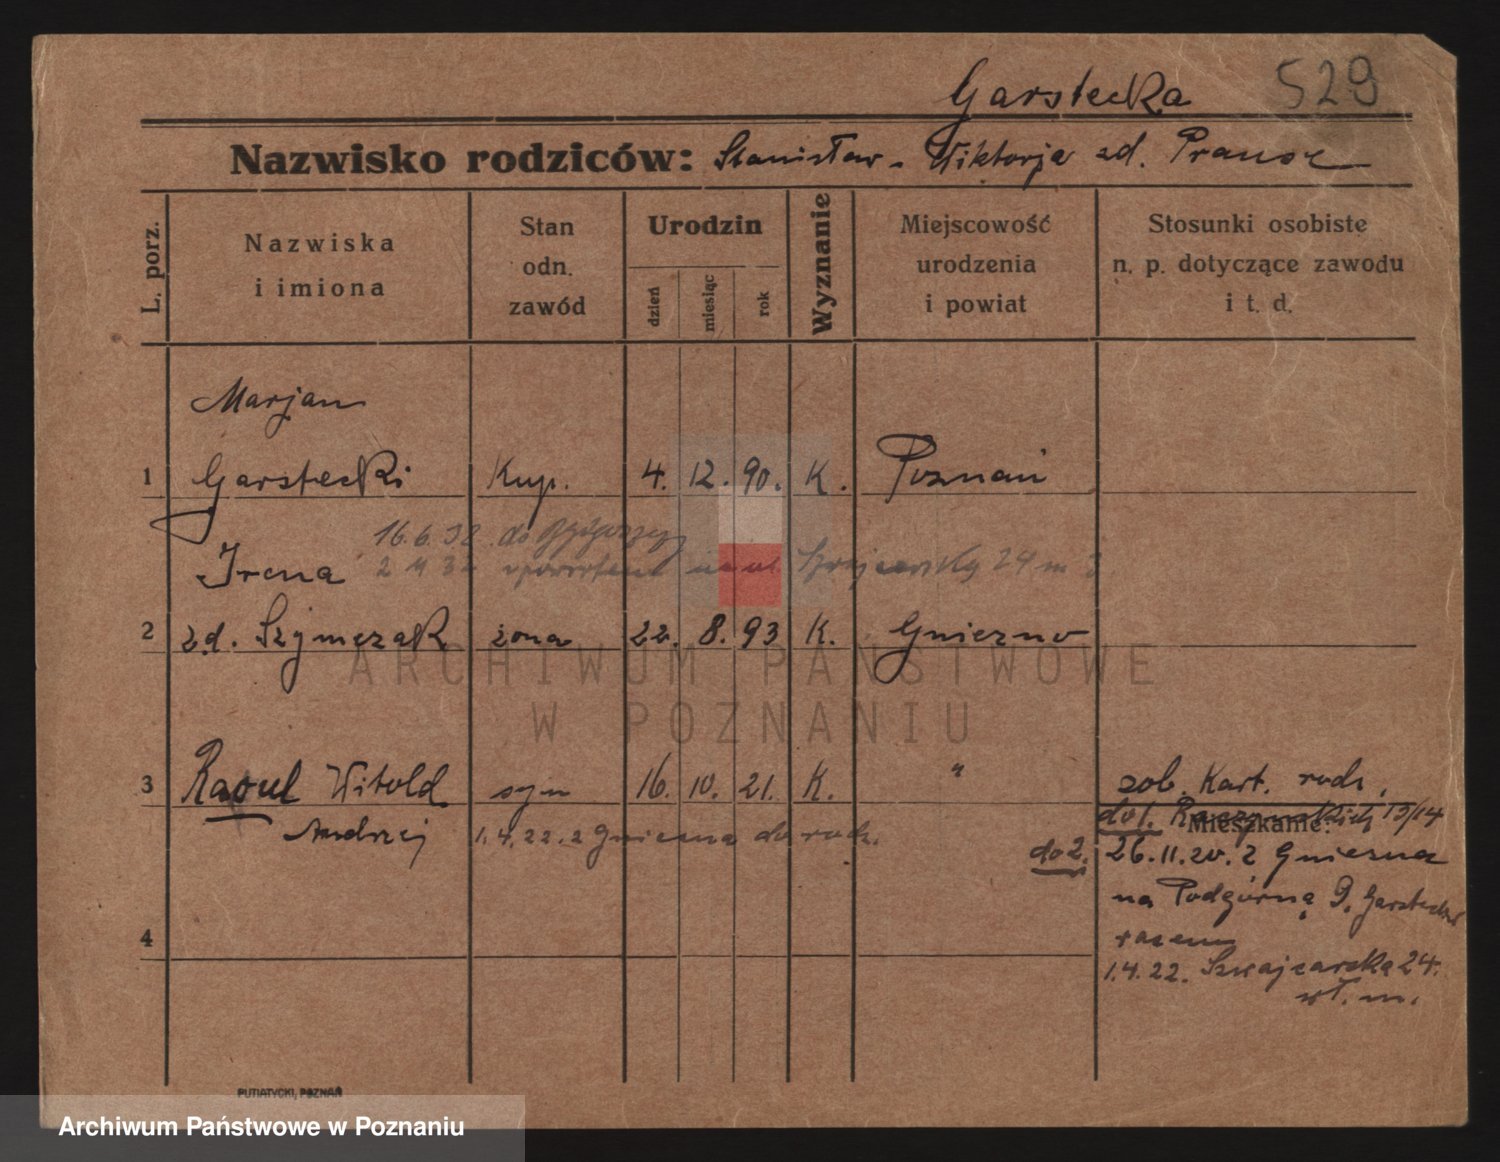 Garstecka 529
Nazwisko rodziców: Stanisław - Wiktorja zd. Prause
L. porz.
Nazwiska i imiona
Stan odn. zawód
Urodzin
dzień
miesiąc
rok
Wyznanie
Miejscowość urodzenia i powiat
Stosunki osobiste n. p. dotyczące zawodu i t. d.
Marjan
1 Garstecki Kup. 4. 12. 90. K. Poznań
16.6.32 do
Irena 24 m 3
2 zd. Szymczak żona 22. 8. 93 K. Gniezno
3 Raoul Witold syn 16. 10. 21. K. " zob. Kart. rodz.
do 1. 15/14
Mieszkanie:
Andrzej 1.4.22. z Gniezna do rodz.
do 2. 26.11.20. z Gniezna
na Podgórną 9.
razem
4
1.4.22. Szwajcarska 24.
wł. m.
PUTIATYCKI, POZNAŃ
ARCHIWUM PAŃSTWOWE
W POZNANIU
Archiwum Państwowe w Poznaniu